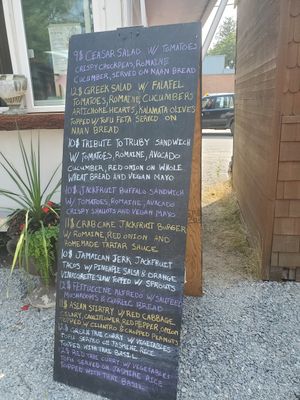 9$ CEASAR SALAD W/ TOMATOES
CRISPY CHICKPEAS, ROMAINE
CUCUMBER, SERVED ON NAAN BREAD
12$ GREEK SALAD W/ FALAFEL
TOMATOES, ROMAINE, CUCUMBERS
ARTICHOKE HEARTS, KALAMATA OLIVES
TOPPED W/ TOFU FETA SERVED ON
NAAN BREAD
10$ TRIBUTE TO TRUBY SANDWICH
W/ TOMATOES, ROMAINE, AVOCADO
CUCUMBER, RED ONION ON WHOLE
WHEAT BREAD AND VEGAN MAYO
10$ JACKFRUIT BUFFALO SANDWICH
W/ TOMATOES, ROMAINE, AVOCADO
CRISPY SHALLOTS AND VEGAN MAYO
11$ CRAB CAKE JACKFRUIT BURGER
W/ ROMAINE, RED ONION AND
HOMEMADE TARTAR SAUCE
10$ JAMAICAN JERK JACKFRUIT
TACOS W/ PINEAPPLE SALSA & ORANGE
VINEGARETTE SLAW TOPPED W/ SPROUTS
12$ FETTUCCINE ALFREDO W/ SAUTEED
MUSHROOMS & GARLIC BREAD
11$ ASIAN STIRFRY W/ RED CABBAGE
CELERY, CAULIFLOWER, RED PEPPER, ONION
TOPPED W/ CILANTRO & CHOPPED PEANUTS
12$ GREEN THAI CURRY W/ VEGETABLES
TOFU SERVED ON JASMINE RICE
TOPPED WITH THAI BASIL
12$ RED THAI CURRY W/ VEGETABLES
TOFU SERVED ON JASMINE RICE
TOPPED WITH THAI BASIL